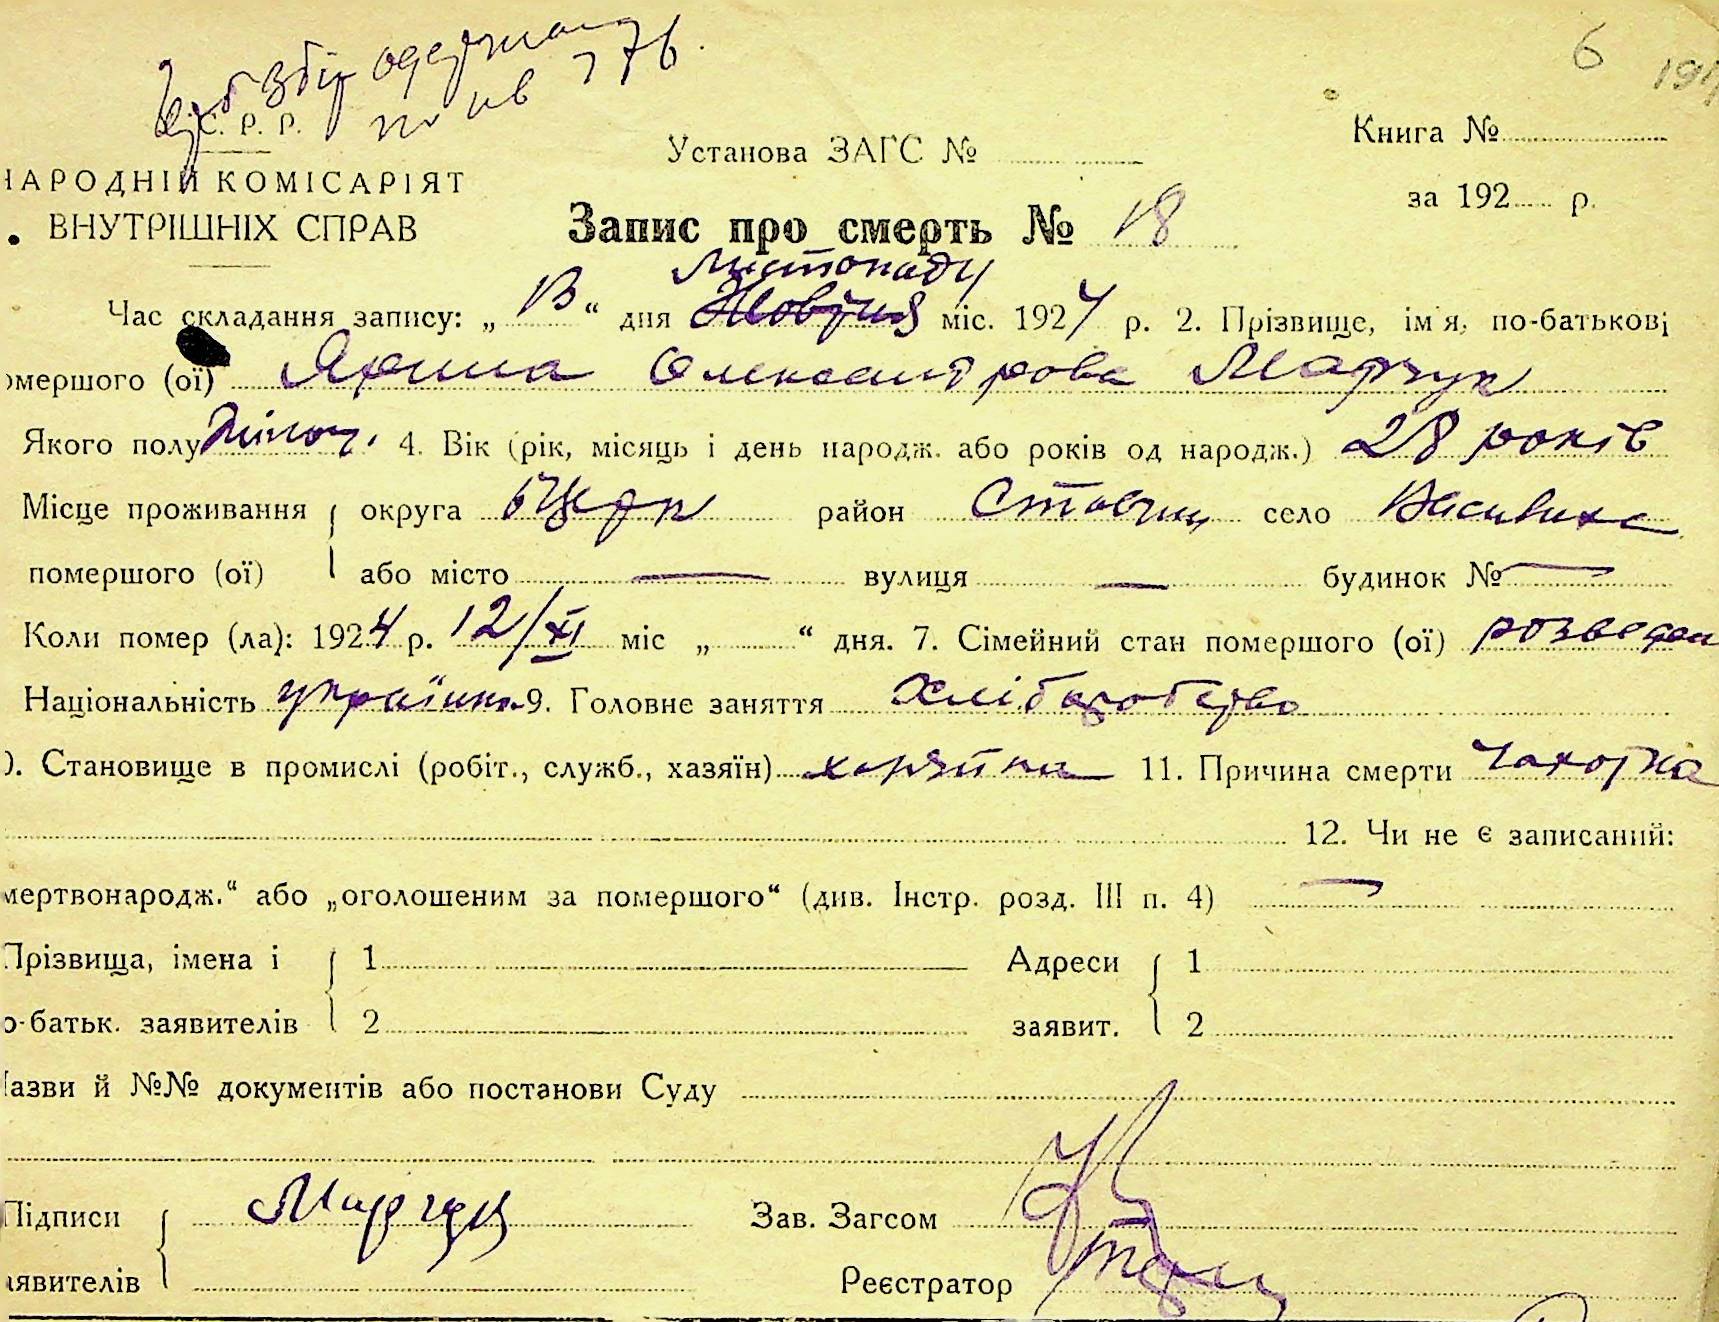 6 191
одержано
по кв 376.
С. Р. Р.
НАРОДНІЙ КОМІСАРІЯТ
ВНУТРІШНІХ СПРАВ
Установа ЗАГС №
Книга №
за 192 р.
Запис про смерть № 18
Листопаду
Час складання запису: „ 13 “ дня Жовтня міс. 1924 р. 2. Прізвище, ім'я, по-батькові
омершого (ої) Ярина Олександрова Марчук
Якого полу жіноч. 4. Вік (рік, місяць і день народж. або років од народж.) 28 років
Місце проживання округа БЦерк район Ставищ село Василиха
помершого (ої) або місто — вулиця — будинок № —
Коли помер (ла): 1924 р. 12/XI міс „ “ дня. 7. Сімейний стан помершого (ої) розведен
Національність українка 9. Головне заняття Хліборобство
0. Становище в промислі (робіт., служб., хазяїн) хазяйка 11. Причина смерти чахотка
12. Чи не є записаний:
мертвонародж.“ або „оголошеним за помершого“ (див. Інстр. розд. III п. 4) —
Прізвища, імена і 1 Адреси 1
о-батьк. заявителів 2 заявит. 2
Назви й №№ документів або постанови Суду
Підписи Марчук Зав. Загсом
аявителів Реєстратор